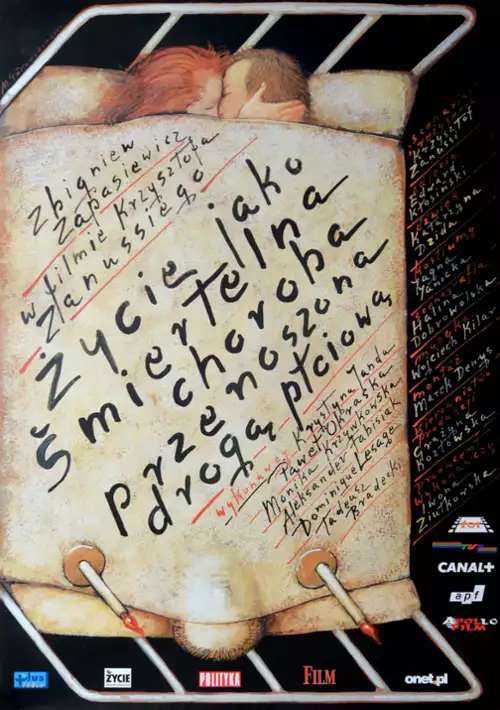 Zbigniew
Zapasiewicz
w filmie Krzysztofa
Zanussiego
Życie jako
śmiertelna
choroba
przenoszona
drogą płciową
wykonawcy Krystyna Janda
Paweł Okraska
Monika Krzywkowska
Aleksander Fabisiak
Dominique Lesage
Tadeusz
Bradecki
Scenariusz
Krzysztof
Zanussi
Edward
Kłosiński
Kostiumy
Jagna
Janicka
Scenografia
Halina
Dobrowolska
muzyka
Wojciech Kilar
montaż
Marek Denys
kierownictwo
produkcji
Grażyna
Kozłowska
Producent
wykonawczy
Iwona
Ziułkowska
tor
TV
CANAL+
apf
APOLLO
FILM
plus
ŻYCIE
POLITYKA
FILM
onet.pl